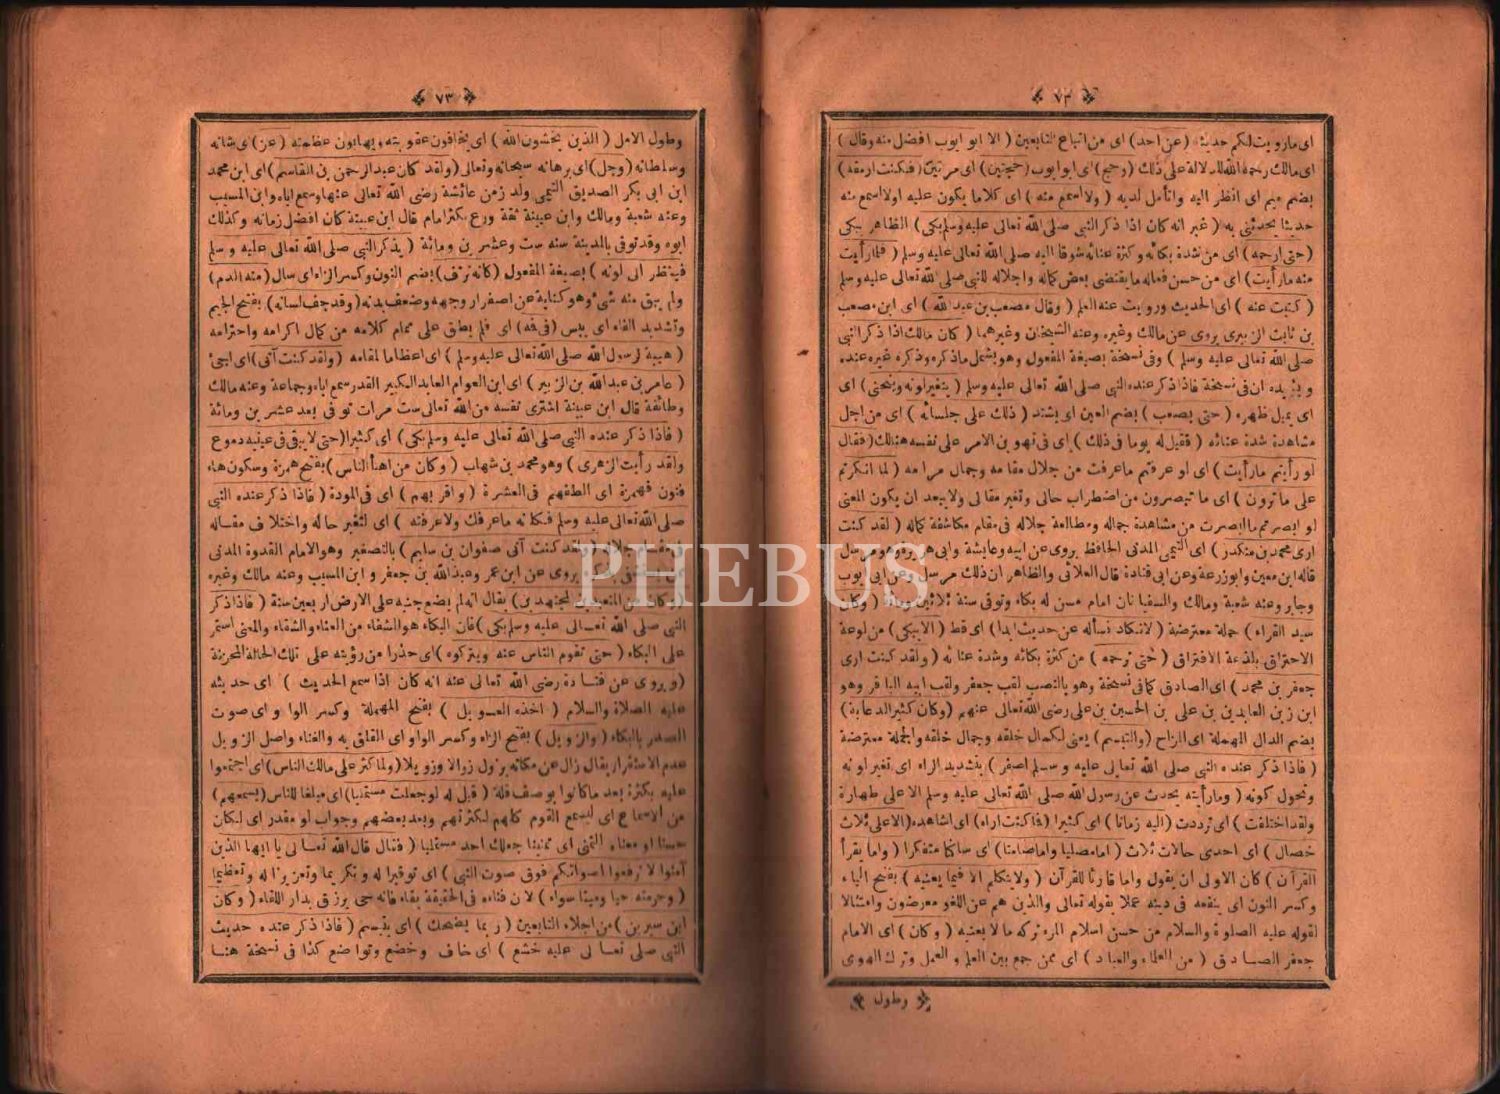 ٧٢
اى مارويت لكم حديثا (عن احد) اى من اتباع التابعين (الا ابو ايوب افضل منه وقال)
اى مالك رحمه الله للدلالة على ذلك (وحج) اى ابو ايوب (حجتين) اى مرتين (فكنت ارمقه)
بضم ميم اى انظر اليه واتأمل لديه (ولا اسمع منه) اى كلاما يكون عليه اولا اسمع منه
حديثا يحدثنى به (غير انه كان اذا ذكر النبى صلى الله تعالى عليه وسلم بكى) الظاهر يبكى
(حتى ارحمه) اى من شدة بكائه وكثرة عنائه شوقا اليه صلى الله تعالى عليه وسلم (فلما رأيت
منه ما رأيت) اى من حسن فعاله ما يقتضى بعض كماله واجلاله للنبى صلى الله تعالى عليه وسلم
(كتبت عنه) اى الحديث ورويت عنه العلم (وقال مصعب بن عبد الله) اى ابن مصعب
بن ثابت الزبيرى يروى عن مالك وغيره وعنه الشيخان وغيرهما (كان مالك اذا ذكر النبى
صلى الله تعالى عليه وسلم) وفى نسخة بصيغة المفعول وهو يشمل ما ذكره وذكره غيره عنده
ويؤيده ان فى نسخة فاذا ذكر عنده النبى صلى الله تعالى عليه وسلم (يتغير لونه وينحنى) اى
اى يميل ظهره (حتى يصعب) بضم العين اى يشتد (ذلك على جلسائه) اى من اجل
مشاهدة شدة عنائه (فقيل له يوما فى ذلك) اى فى تهوين الامر على نفسه هنالك (فقال
لو رأيتم ما رأيت) اى لو عرفتم ما عرفت من جلال مقامه وجمال مرامه (لما انكرتم
على ما ترون) اى ما تبصرون من اضطراب حالى وتغير مقالى ولا يبعد ان يكون المعنى
لو ابصرتم ما ابصرت من مشاهدة جماله ومطالعة جلاله فى مقام مكاشفة كماله (لقد كنت
ارى محمد بن منكدر) اى التيمى المدنى الحافظ يروى عن ابيه وعايشة وابى هريرة وهو مرسل
قاله ابن معين وابو زرعة وعن ابى قتادة قال العلائى والظاهر ان ذلك مرسل وعن ابى ايوب
وجابر وعنه شعبة ومالك والسفيانان امام مسن له بكاء وتوفى سنة ثلاثين ومائة (وكان
سيد القراء) جملة معترضة (لانكاد نسأله عن حديث ابدا) اى قط (الا يبكى) من لوعة
الاحتراق بلذعة الافتراق (حتى نرحمه) من كثرة بكائه وشدة عنائه (ولقد كنت ارى
جعفر بن محمد) اى الصادق كما فى نسخة وهو بالنصب لقب جعفر ولقب ابيه الباقر وهو
ابن زين العابدين بن على بن الحسين بن على رضى الله تعالى عنهم (وكان كثير الدعابة)
بضم الدال المهملة اى المزاح (والتبسم) يعنى لكمال خلقه وجمال خلقه والجملة معترضة
(فاذا ذكر عنده النبى صلى الله تعالى عليه وسلم اصفر) بتشديد الراء اى تغير لونه
وتحول كونه (وما رأيته يحدث عن رسول الله صلى الله تعالى عليه وسلم الا على طهارة
ولقد اختلفت) اى ترددت (اليه زمانا) اى كثيرا (فما كنت اراه) اى اشاهده (الا على ثلاث
خصال) اى احدى حالات ثلاث (اما مصليا واما صامتا) اى ساكتا متفكرا (واما يقرأ
القرآن) كان الاولى ان يقول واما قارئا للقرآن (ولا يتكلم الا فيما يعنيه) بفتح الياء
وكسر النون اى ينفعه فى دينه عملا بقوله تعالى والذين هم عن اللغو معرضون وامتثالا
لقوله عليه الصلوة والسلام من حسن اسلام المرء تركه ما لا يعنيه (وكان) اى الامام
جعفر الصادق (من العلماء والعباد) اى ممن جمع بين العلم والعمل وترك الهوى
وطول
٧٣
وطول الامل (الذين يخشون الله) اى يخافون عقوبته ويهابون عظمته (عز) اى شانه
وسلطانه (وجل) اى برهانه سبحانه وتعالى (ولقد كان عبد الرحمن بن القاسم) اى ابن محمد
ابن ابى بكر الصديق التيمى ولد زمن عائشة رضى الله تعالى عنها وسمع اباه وابن المسيب
وعنه شعبة ومالك وابن عيينة ثقة ورع مكثر امام قال ابن عيينة كان افضل زمانه وكذلك
ابوه وقد توفى بالمدينة سنه ست وعشرين ومائة (يذكر النبى صلى الله تعالى عليه وسلم
فينظر الى لونه) بصيغة المفعول (كانه نزف) بضم النون وكسر الزاء اى سال (منه الدم)
ولم يبق منه شئ وهو كناية عن اصفرار وجهه وضعف بدنه (وقد جف لسانه) بفتح الجيم
وتشديد الفاء اى يبس (فى فه) اى فلم يطق على تمام كلامه من كمال اكرامه واحترامه
(هيبة لرسول الله صلى الله تعالى عليه وسلم) اى اعظاما لمقامه (ولقد كنت آتى) اى اجئ
(عامر بن عبد الله بن الزبير) اى ابن العوام العابد الكبير القدر سمع اباه وجماعة وعنه مالك
وطائفة قال ابن عيينة اشترى نفسه من الله تعالى ست مرات توفى بعد عشرين ومائة
(فاذا ذكر عنده النبى صلى الله تعالى عليه وسلم بكى) اى كثيرا (حتى لا يبقى فى عينيه دموع
ولقد رأيت الزهرى) وهو محمد بن شهاب (وكان من اهنأ الناس) بفتح همزة وسكون هاء
فنون فهمزة اى الطفهم فى العشرة (واقربهم) اى فى المودة (فاذا ذكر عنده النبى
صلى الله تعالى عليه وسلم فكانه ما عرفك ولا عرفته) اى لتغير حاله واختلاف مقاله
جلاله (ولقد كنت آتى صفوان بن سليم) بالتصغير وهو الامام القدوة المدنى
يروى عن ابن عمر وعبد الله بن جعفر وابن المسيب وعنه مالك وغيره
(وكان من المتعبدين المجتهدين) يقال انه لم يضع جنبه على الارض اربعين سنة (فاذا ذكر
النبى صلى الله تعالى عليه وسلم بكى) فان البكاء هو الشفاء من العناء والشقاء والمعنى استمر
على البكاء (حتى تقوم الناس عنه ويتركوه) اى حذرا من رؤيته على تلك الحالة المحزنة
(وروى عن قتادة رضى الله تعالى عنه انه كان اذا سمع الحديث) اى حديثه
عليه الصلاة والسلام (اخذه العويل) بفتح المهملة وكسر الواو اى صوت
الصدر بالبكاء (والزويل) بفتح الزاء وكسر الواو اى القلق به والعناء واصل الزويل
عدم الاستقرار يقال زال عن مكانه يزول زوالا وزويلا (ولما كثر على مالك الناس) اى اجتمعوا
عليه بكثرة بعد ما كانوا بوصف قلة (قيل له لو جعلت مستمليا) اى مبلغا للناس (يسمعهم)
من الاسماع اى ليسمع القوم كلهم لكثرتهم وبعد بعضهم وجواب لو مقدر اى لكان
حسنا او معناه التمنى اى تمنينا جعلك احد مستمليا (فقال قال الله تعالى يا ايها الذين
آمنوا لا ترفعوا اصواتكم فوق صوت النبى) اى توقيرا له وتكريما وتعزيزا له وتعظيما
(وحرمته حيا وميتا سواء) لان فناءه فى الحقيقة بقاء فانه حى يرزق بدار اللقاء (وكان
ابن سيرين) من اجلاء التابعين (ربما يضحك) اى يتبسم (فاذا ذكر عنده حديث
النبى صلى تعالى عليه خشع) اى خاف وخضع وتواضع كذا فى نسخة هنا
PHEBUS